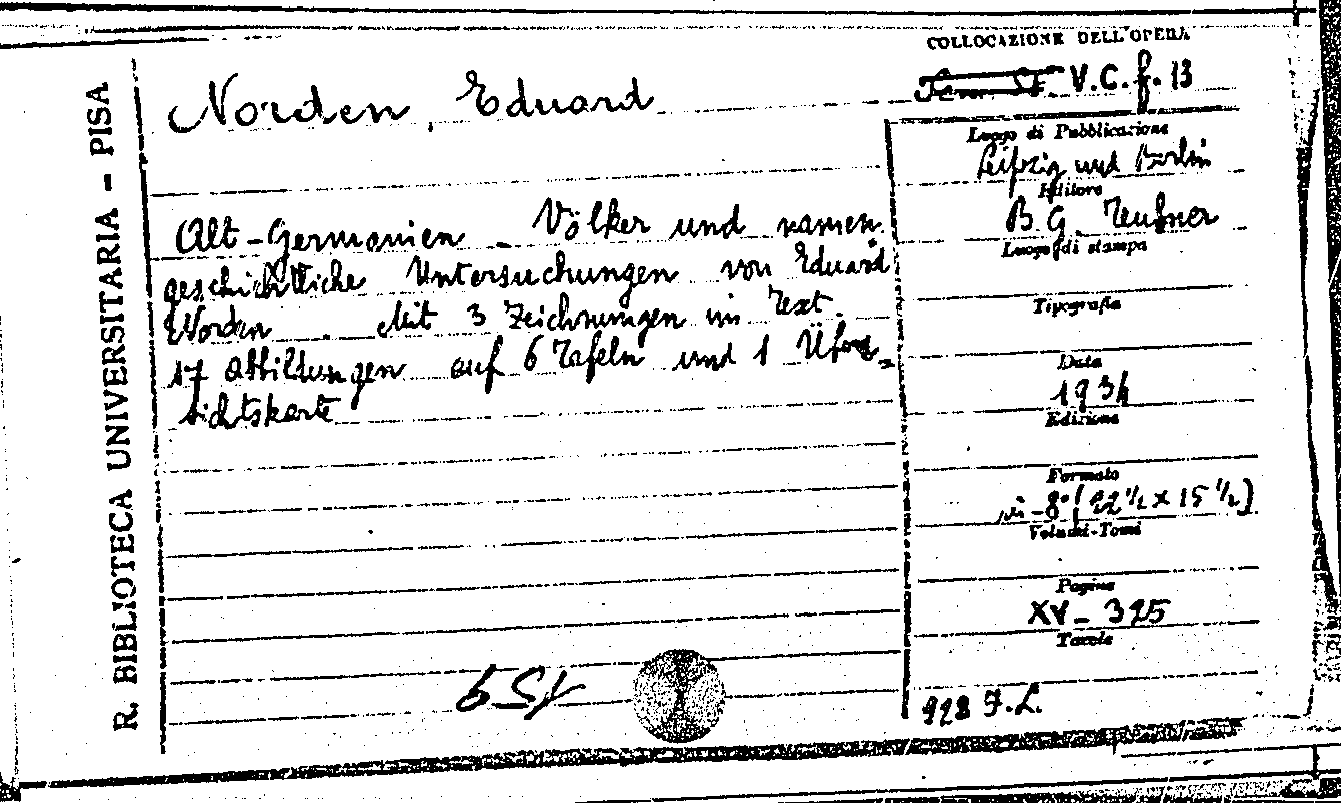 R. BIBLIOTECA UNIVERSITARIA – PISA
Norden, Eduard
Alt-Germanien – Völker und namen
geschichtliche Untersuchungen von Eduard
Norden. Mit 3 Zeichnungen im Text.
17 Abbildungen auf 6 Tafeln und 1 Über-
sichtskarte
COLLOCAZIONE DELL'OPERA
V.C. f. 13
Luogo di Pubblicazione
Leipzig und Berlin
Editore
B. G. Teubner
Luogo di stampa
Tipografia
Data
1934
Edizione
Formato
in-8° (22 ½ x 15 ½)
Volumi-Tomi
Pagine
XV – 325
Tavole
928 F.L.